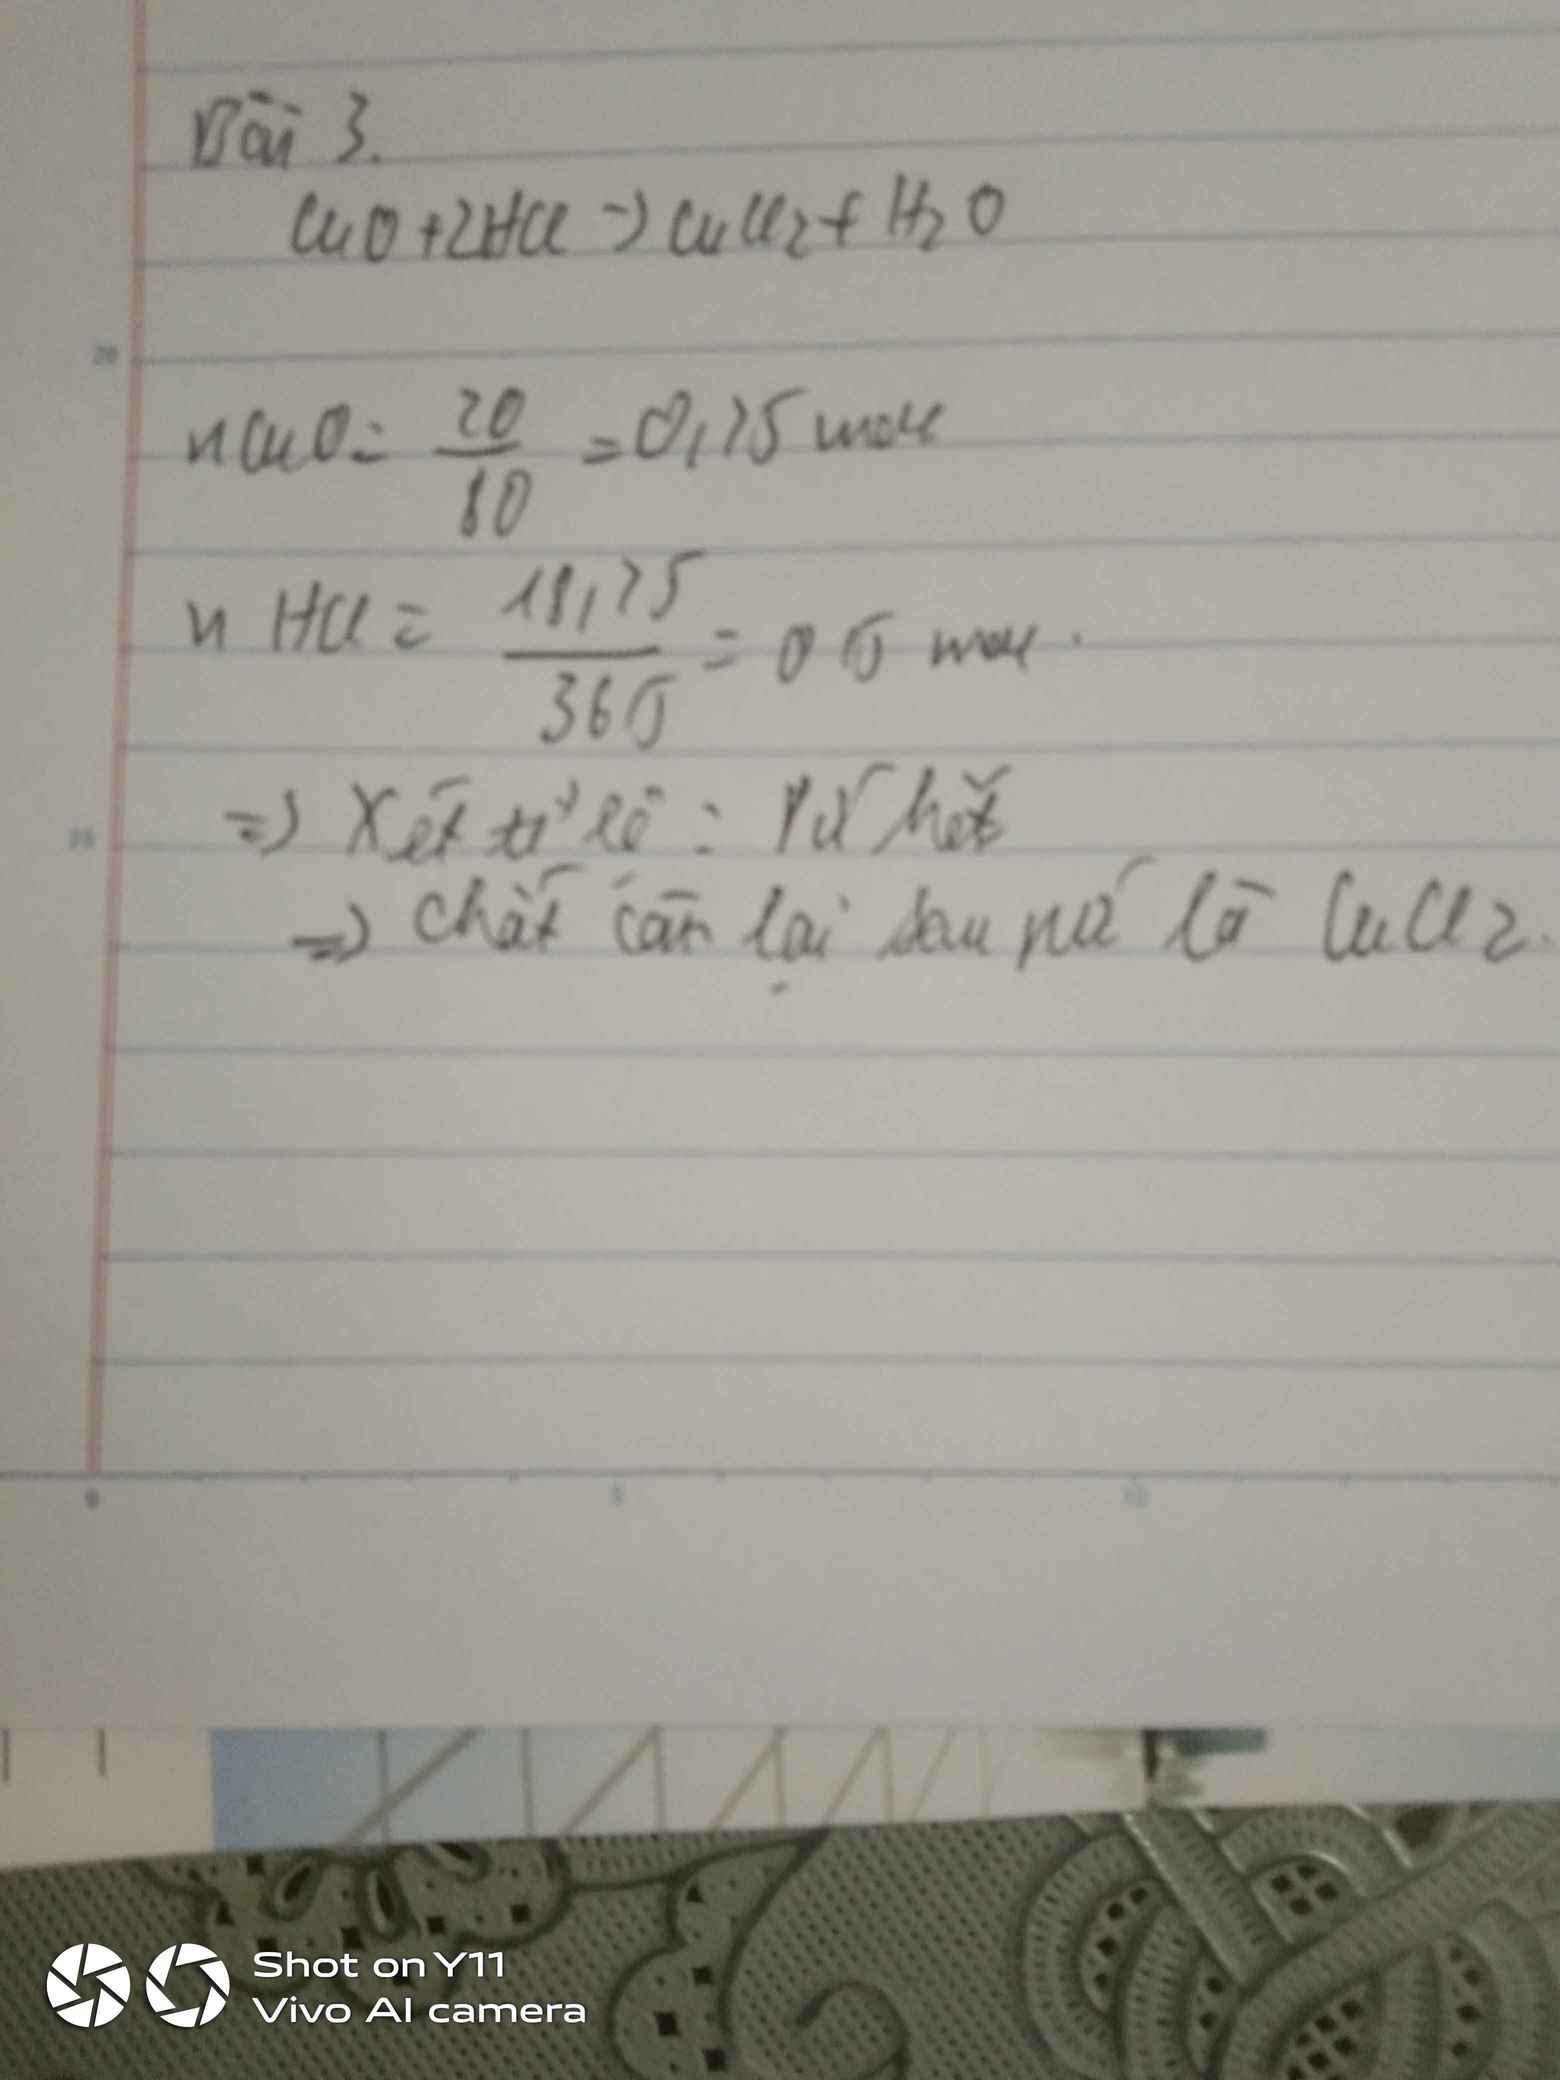 Bài 3.
CuO + 2HCl => CuCl2 + H2O
20
nCuO = 20/80 = 0,25 mol
n HCl = 18,25/36,5 = 0,5 mol.
=> Xét tỉ lệ: PƯ hết
25
=> chất còn lại sau pứ là CuCl2.
0 5 10
Shot on Y11
Vivo AI camera